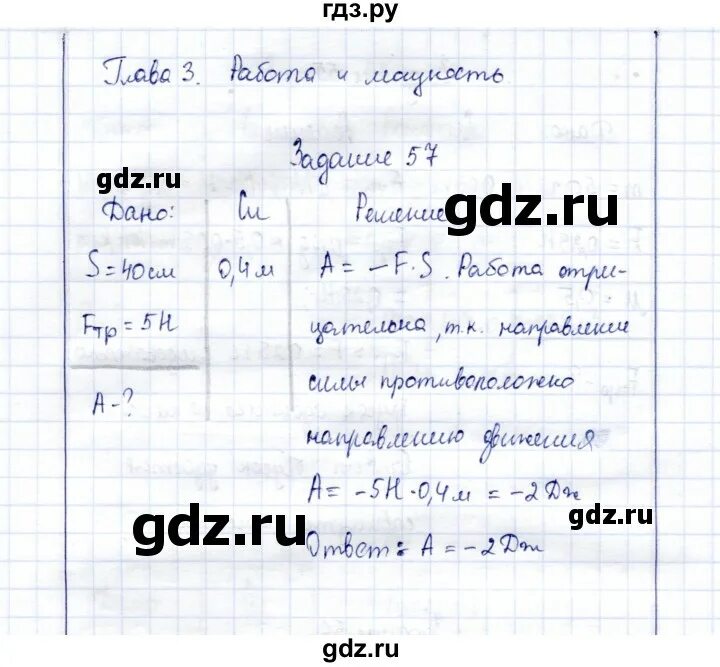 гдз.ру
Глава 3. Работа и мощность.
Задание 57
gdz.ru
Дано: Си Решение
gdz.ru
S = 40 см 0,4 м A = -F·S. Работа отри-
Fтр = 5Н цательна, т.к. направление
A - ? силы противоположно
направлению движения
A = -5Н·0,4 м = -2 Дж
gdz.ru
gdz.ru
Ответ: A = -2 Дж
gdz.ru